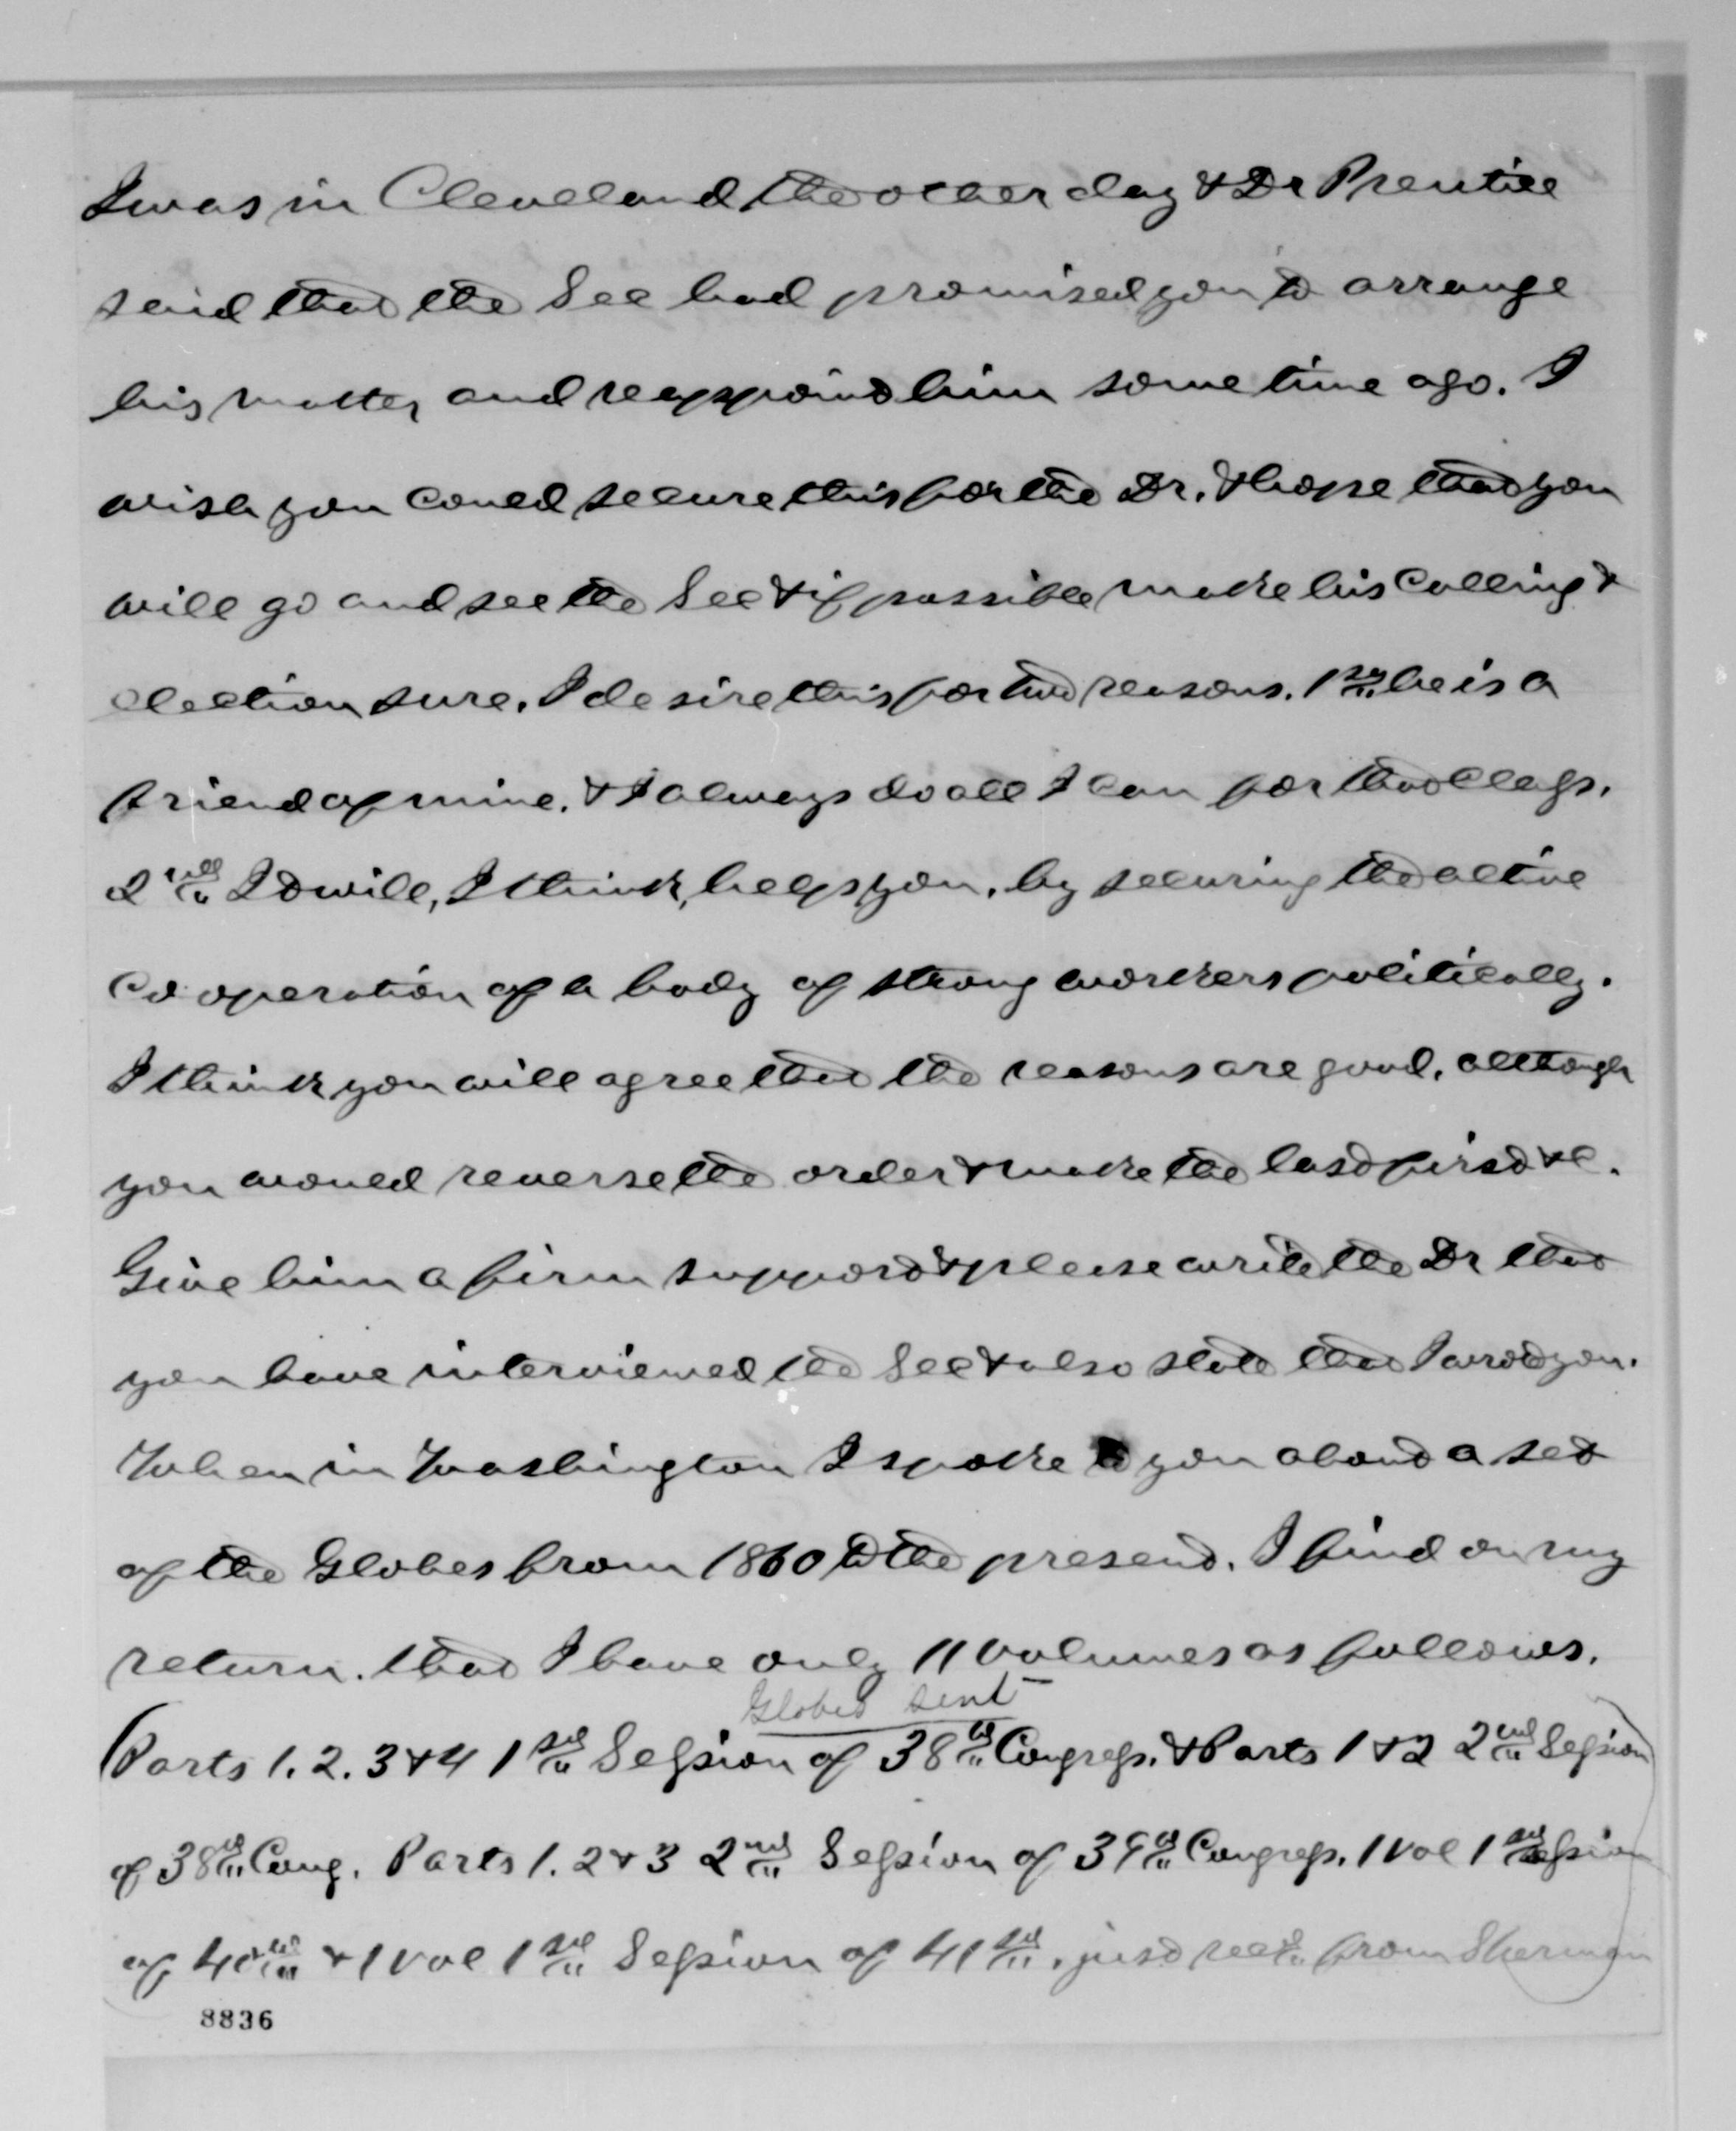 I was in Cleveland the other day & Dr Prentice
said that the Sec had promised you to arrange
his matter and reappoint him some time ago. I
wish you could secure this for the Dr. & hope that you
will go and see the Sec & if possible make his calling &
election sure. I desire this for two reasons. 1st he is a
friend of mine. & I always do all I can for that class.
2nd It will, I think, help you, by securing the active
Co operation of a body of strong workers politically.
I think you will agree that the reasons are good, although
you would reverse the order & make the last first &c.
Give him a firm support & please write the Dr that
you have interviewed the Sec & also state that I wrote you.
When in Washington I spoke to you about a set
of the Globes from 1860 to the present. I find on my
return. that I have only 11 volumes as follows.
Globes sent
(Parts 1. 2. 3 & 4 1st Session of 38th Congress. & Parts 1 & 2 2nd Session
of 38th Cong. Parts 1. 2 & 3 2nd Session of 39th Congress. 1 Vol 1st Session
of 40th & 1 Vol 1st Session of 41st. just recd from Sherman)
8836